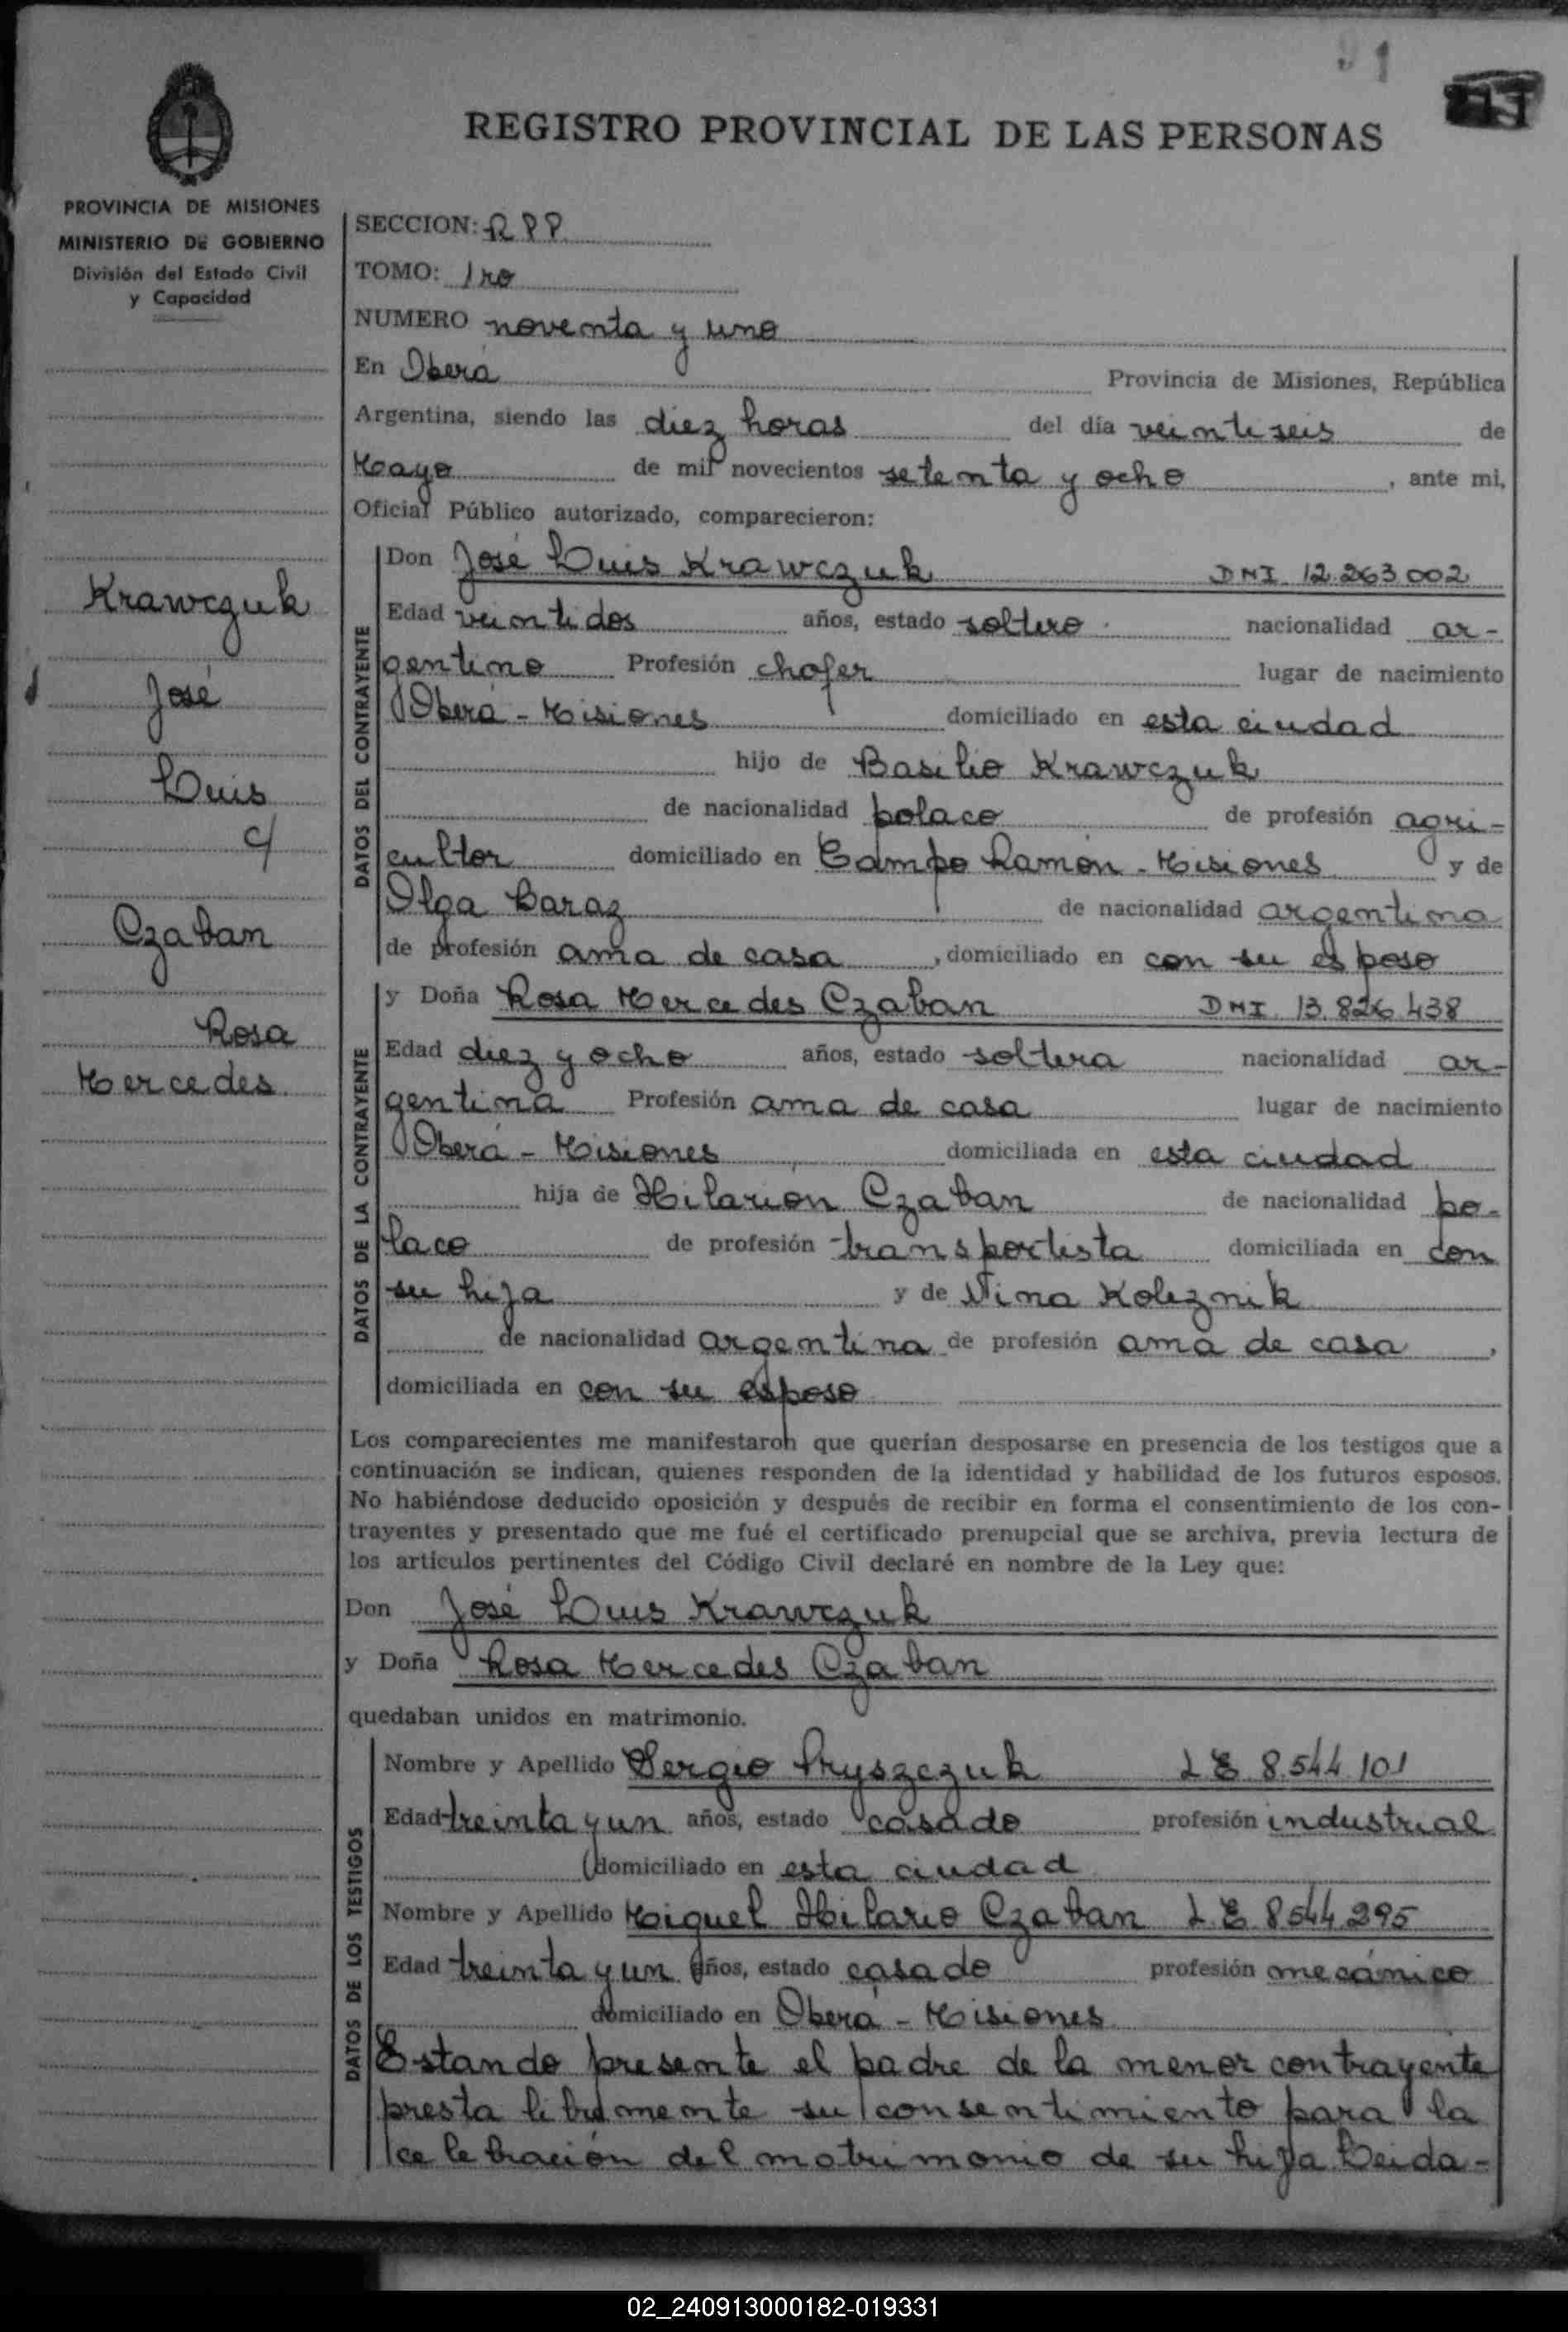 91
REGISTRO PROVINCIAL DE LAS PERSONAS
PROVINCIA DE MISIONES
MINISTERIO DE GOBIERNO
División del Estado Civil
y Capacidad
Krawczuk
José
Luis
c/
Czaban
Rosa
Mercedes
SECCION: RPP
TOMO: 1ro
NUMERO noventa y uno
En Oberá Provincia de Misiones, República
Argentina, siendo las diez horas del día veintiseis de
Mayo de mil novecientos setenta y ocho, ante mi,
Oficial Público autorizado, comparecieron:
DATOS DEL CONTRAYENTE
Don José Luis Krawczuk DNI 12.263.002
Edad veintidos años, estado soltero nacionalidad ar-
gentino Profesión chofer lugar de nacimiento
Oberá - Misiones domiciliado en esta ciudad
hijo de Basilio Krawczuk
de nacionalidad polaco de profesión agri-
cultor domiciliado en Campo Ramón - Misiones y de
Olga Baraz de nacionalidad argentina
de profesión ama de casa, domiciliado en con su esposo
DATOS DE LA CONTRAYENTE
y Doña Rosa Mercedes Czaban DNI 13.826.438
Edad diez y ocho años, estado soltera nacionalidad ar-
gentina Profesión ama de casa lugar de nacimiento
Oberá - Misiones domiciliada en esta ciudad
hija de Hilarión Czaban de nacionalidad po-
laco de profesión transportista domiciliada en con
su hija y de Nina Koleznik
de nacionalidad argentina de profesión ama de casa,
domiciliada en con su esposo
Los comparecientes me manifestaron que querían desposarse en presencia de los testigos que a
continuación se indican, quienes responden de la identidad y habilidad de los futuros esposos.
No habiéndose deducido oposición y después de recibir en forma el consentimiento de los con-
trayentes y presentado que me fué el certificado prenupcial que se archiva, previa lectura de
los artículos pertinentes del Código Civil declaré en nombre de la Ley que:
Don José Luis Krawczuk
y Doña Rosa Mercedes Czaban
quedaban unidos en matrimonio.
DATOS DE LOS TESTIGOS
Nombre y Apellido Sergio Pryszczuk LE 8.544.101
Edad treinta y un años, estado casado profesión industrial
domiciliado en esta ciudad
Nombre y Apellido Miguel Hilario Czaban L.E 8544.295
Edad treinta y un años, estado casado profesión mecánico
domiciliado en Oberá - Misiones
Estando presente el padre de la menor contrayente
presta libremente su consentimiento para la
celebración del matrimonio de su hija Leida-
02_240913000182-019331